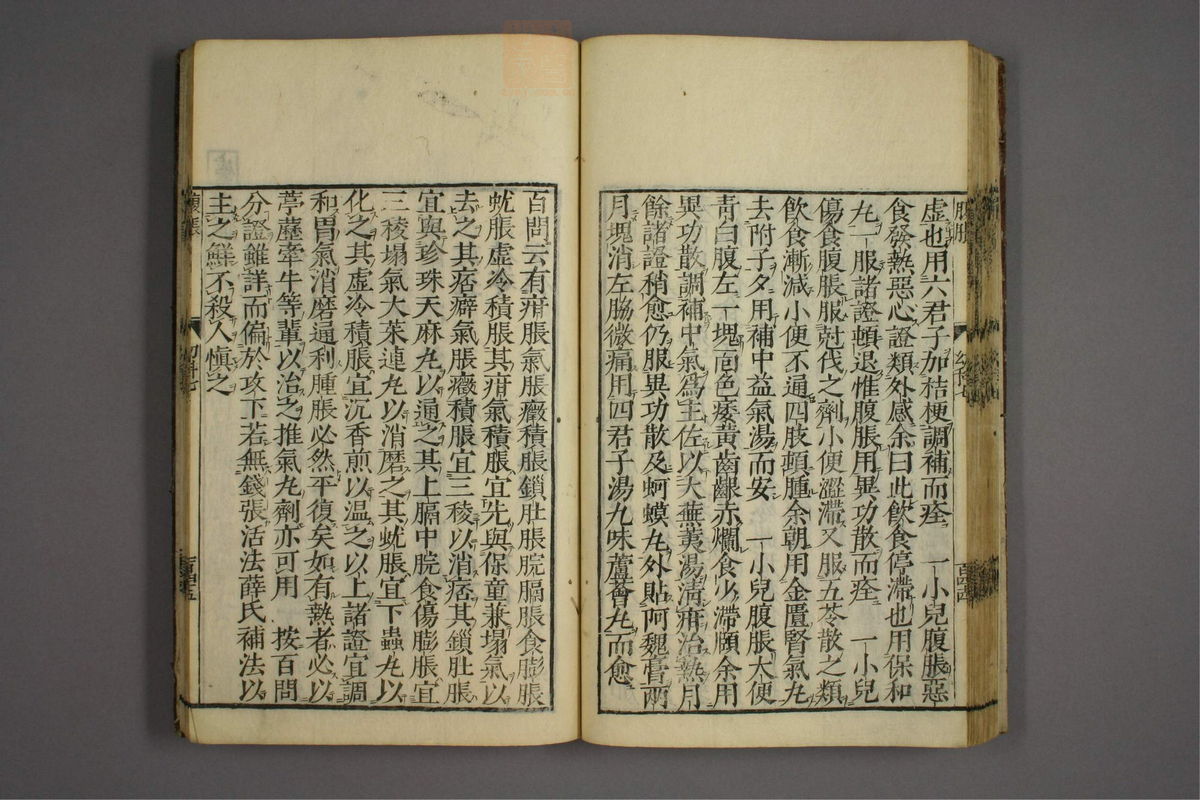 虛也用六君子加桔梗調補而痊　一小兒腹脹惡
食發熱惡心證類外感余曰此飲食停滯也用保和
丸一服諸證頓退惟腹脹用異功散而痊　一小兒
傷食腹脹服尅伐之劑小便澀滯又服五苓散之類
飲食漸減小便不通四肢頓腫余朝用金匱腎氣丸
去附子夕用補中益氣湯而安　一小兒腹脹大便
青白腹左一塊面色痿黃齒齦赤爛食少滯頤余用
異功散調補中氣爲主佐以大蕪荑湯淸疳治熱月
餘諸證稍愈仍服異功散及蚵蟆丸外貼阿魏膏兩
月塊消左脇微痛用四君子湯九味蘆薈丸而愈
百問云有疳脹氣脹癥積脹鎖肚脹脘膈脹食膨脹
蚘脹虛冷積脹其疳氣積脹宜先與保童兼塌氣以
去之其痞癖氣脹癥積脹宜三稜以消痞其鎖肚脹
宜與珍珠天麻丸以通之其上膈中脘食傷膨脹宜
三稜塌氣大茱連丸以消磨之其蚘脹宜下蟲丸以
化之其虛冷積脹宜沉香煎以温之以上諸證宜調
和胃氣消磨通利腫脹必然平復矣如有熱者必以
葶藶牽牛等輩以治之推氣丸劑亦可用　按百問
分證雖詳而偏於攻下若無錢張活法薛氏補法以
主之鮮不殺人愼之